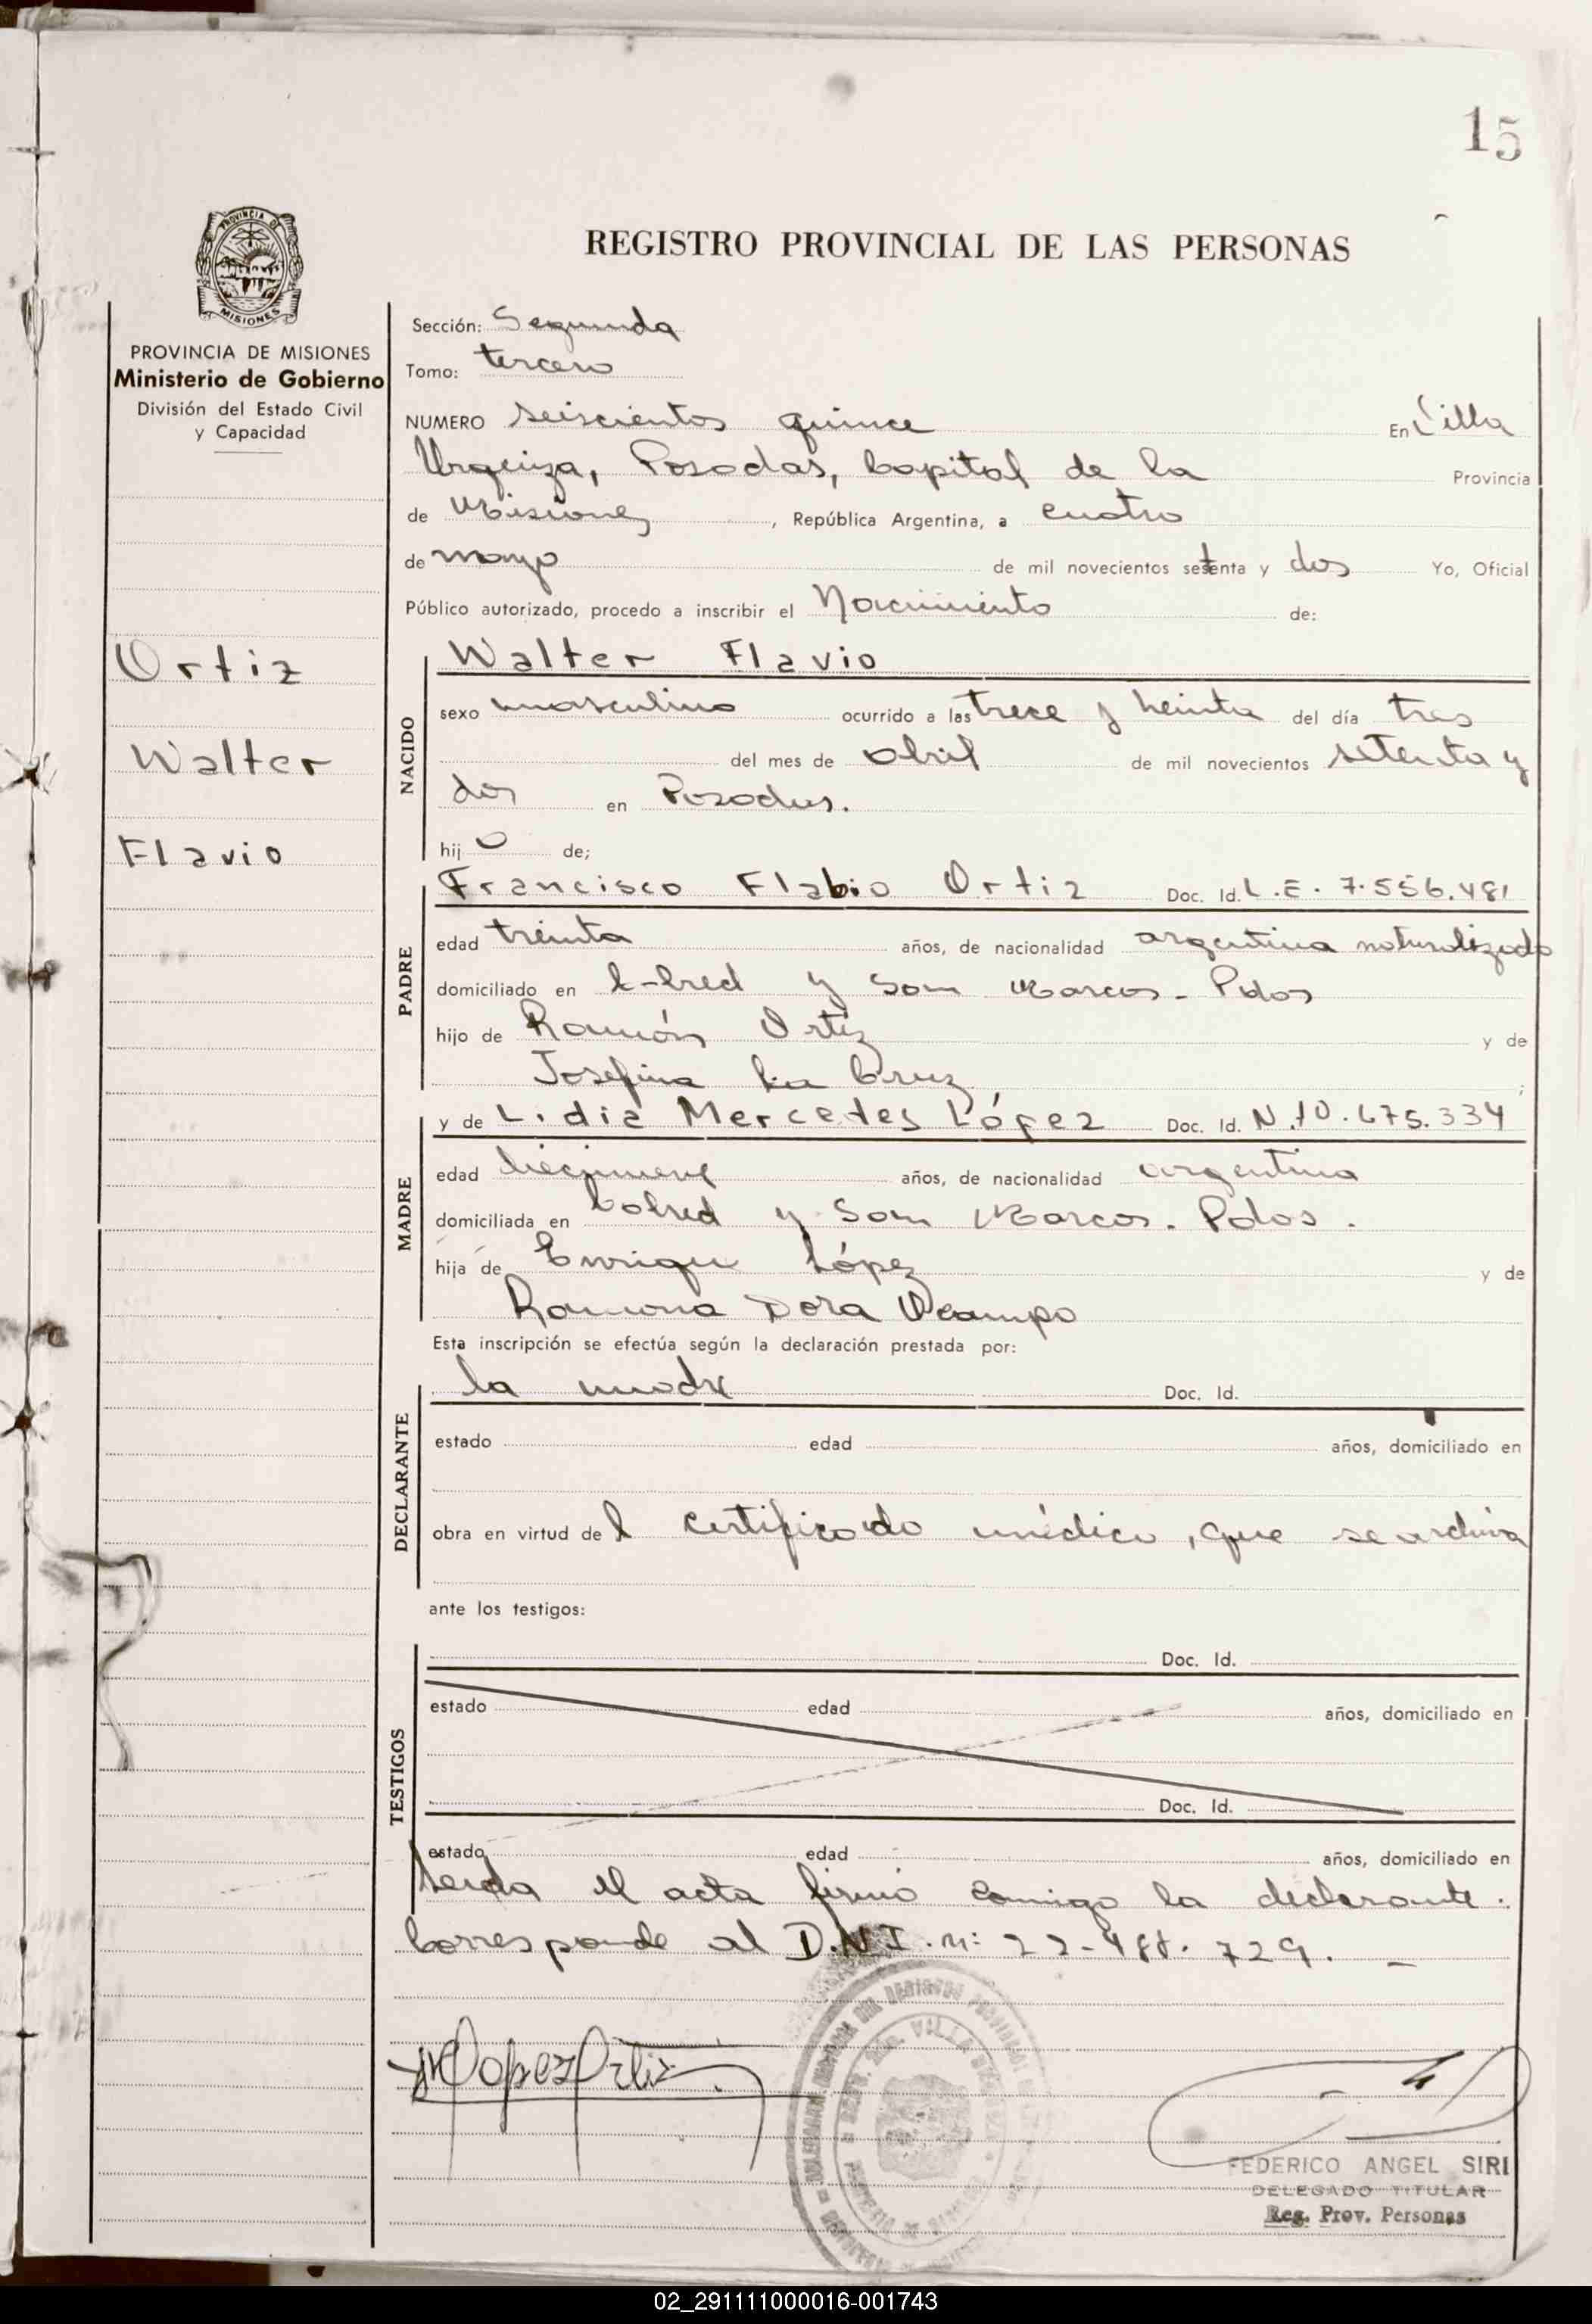 15
PROVINCIA DE
MISIONES
REGISTRO PROVINCIAL DE LAS PERSONAS
PROVINCIA DE MISIONES
Ministerio de Gobierno
División del Estado Civil
y Capacidad
Ortiz
Walter
Flavio
Sección: Segunda
Tomo: tercero
NUMERO seiscientos quince En Villa
Urquiza, Posadas, Capital de la Provincia
de Misiones, República Argentina, a cuatro
de mayo de mil novecientos setenta y dos Yo, Oficial
Público autorizado, procedo a inscribir el Nacimiento de:
Walter Flavio
NACIDO
sexo masculino ocurrido a las trece y treinta del día tres
del mes de abril de mil novecientos setenta y
dos en Posadas.
hijo de;
Francisco Flabio Ortiz Doc. Id. L.E. 7.556.481
PADRE
edad treinta años, de nacionalidad argentina naturalizado
domiciliado en y San Marcos - Pdas
hijo de Ramón Ortiz y de
Josefina Cruz;
y de Lidia Mercedes López Doc. Id. N. 10.675.334
MADRE
edad diecinueve años, de nacionalidad argentina
domiciliada en y San Marcos. Pdas.
hija de Enrique López y de
Ramona Dora Ocampo
Esta inscripción se efectúa según la declaración prestada por:
la madre Doc. Id.
DECLARANTE
estado edad años, domiciliado en
obra en virtud del certificado médico, que se archiva
ante los testigos:
Doc. Id.
TESTIGOS
estado edad años, domiciliado en
Doc. Id.
estado edad años, domiciliado en
Leída el acta firmó conmigo la declarante.
Corresponde al D.N.I. n: 22-488.729. _
López Ortiz
VILLA
FEDERICO ANGEL SIRI
DELEGADO TITULAR
Reg. Prov. Personas
02_291111000016-001743